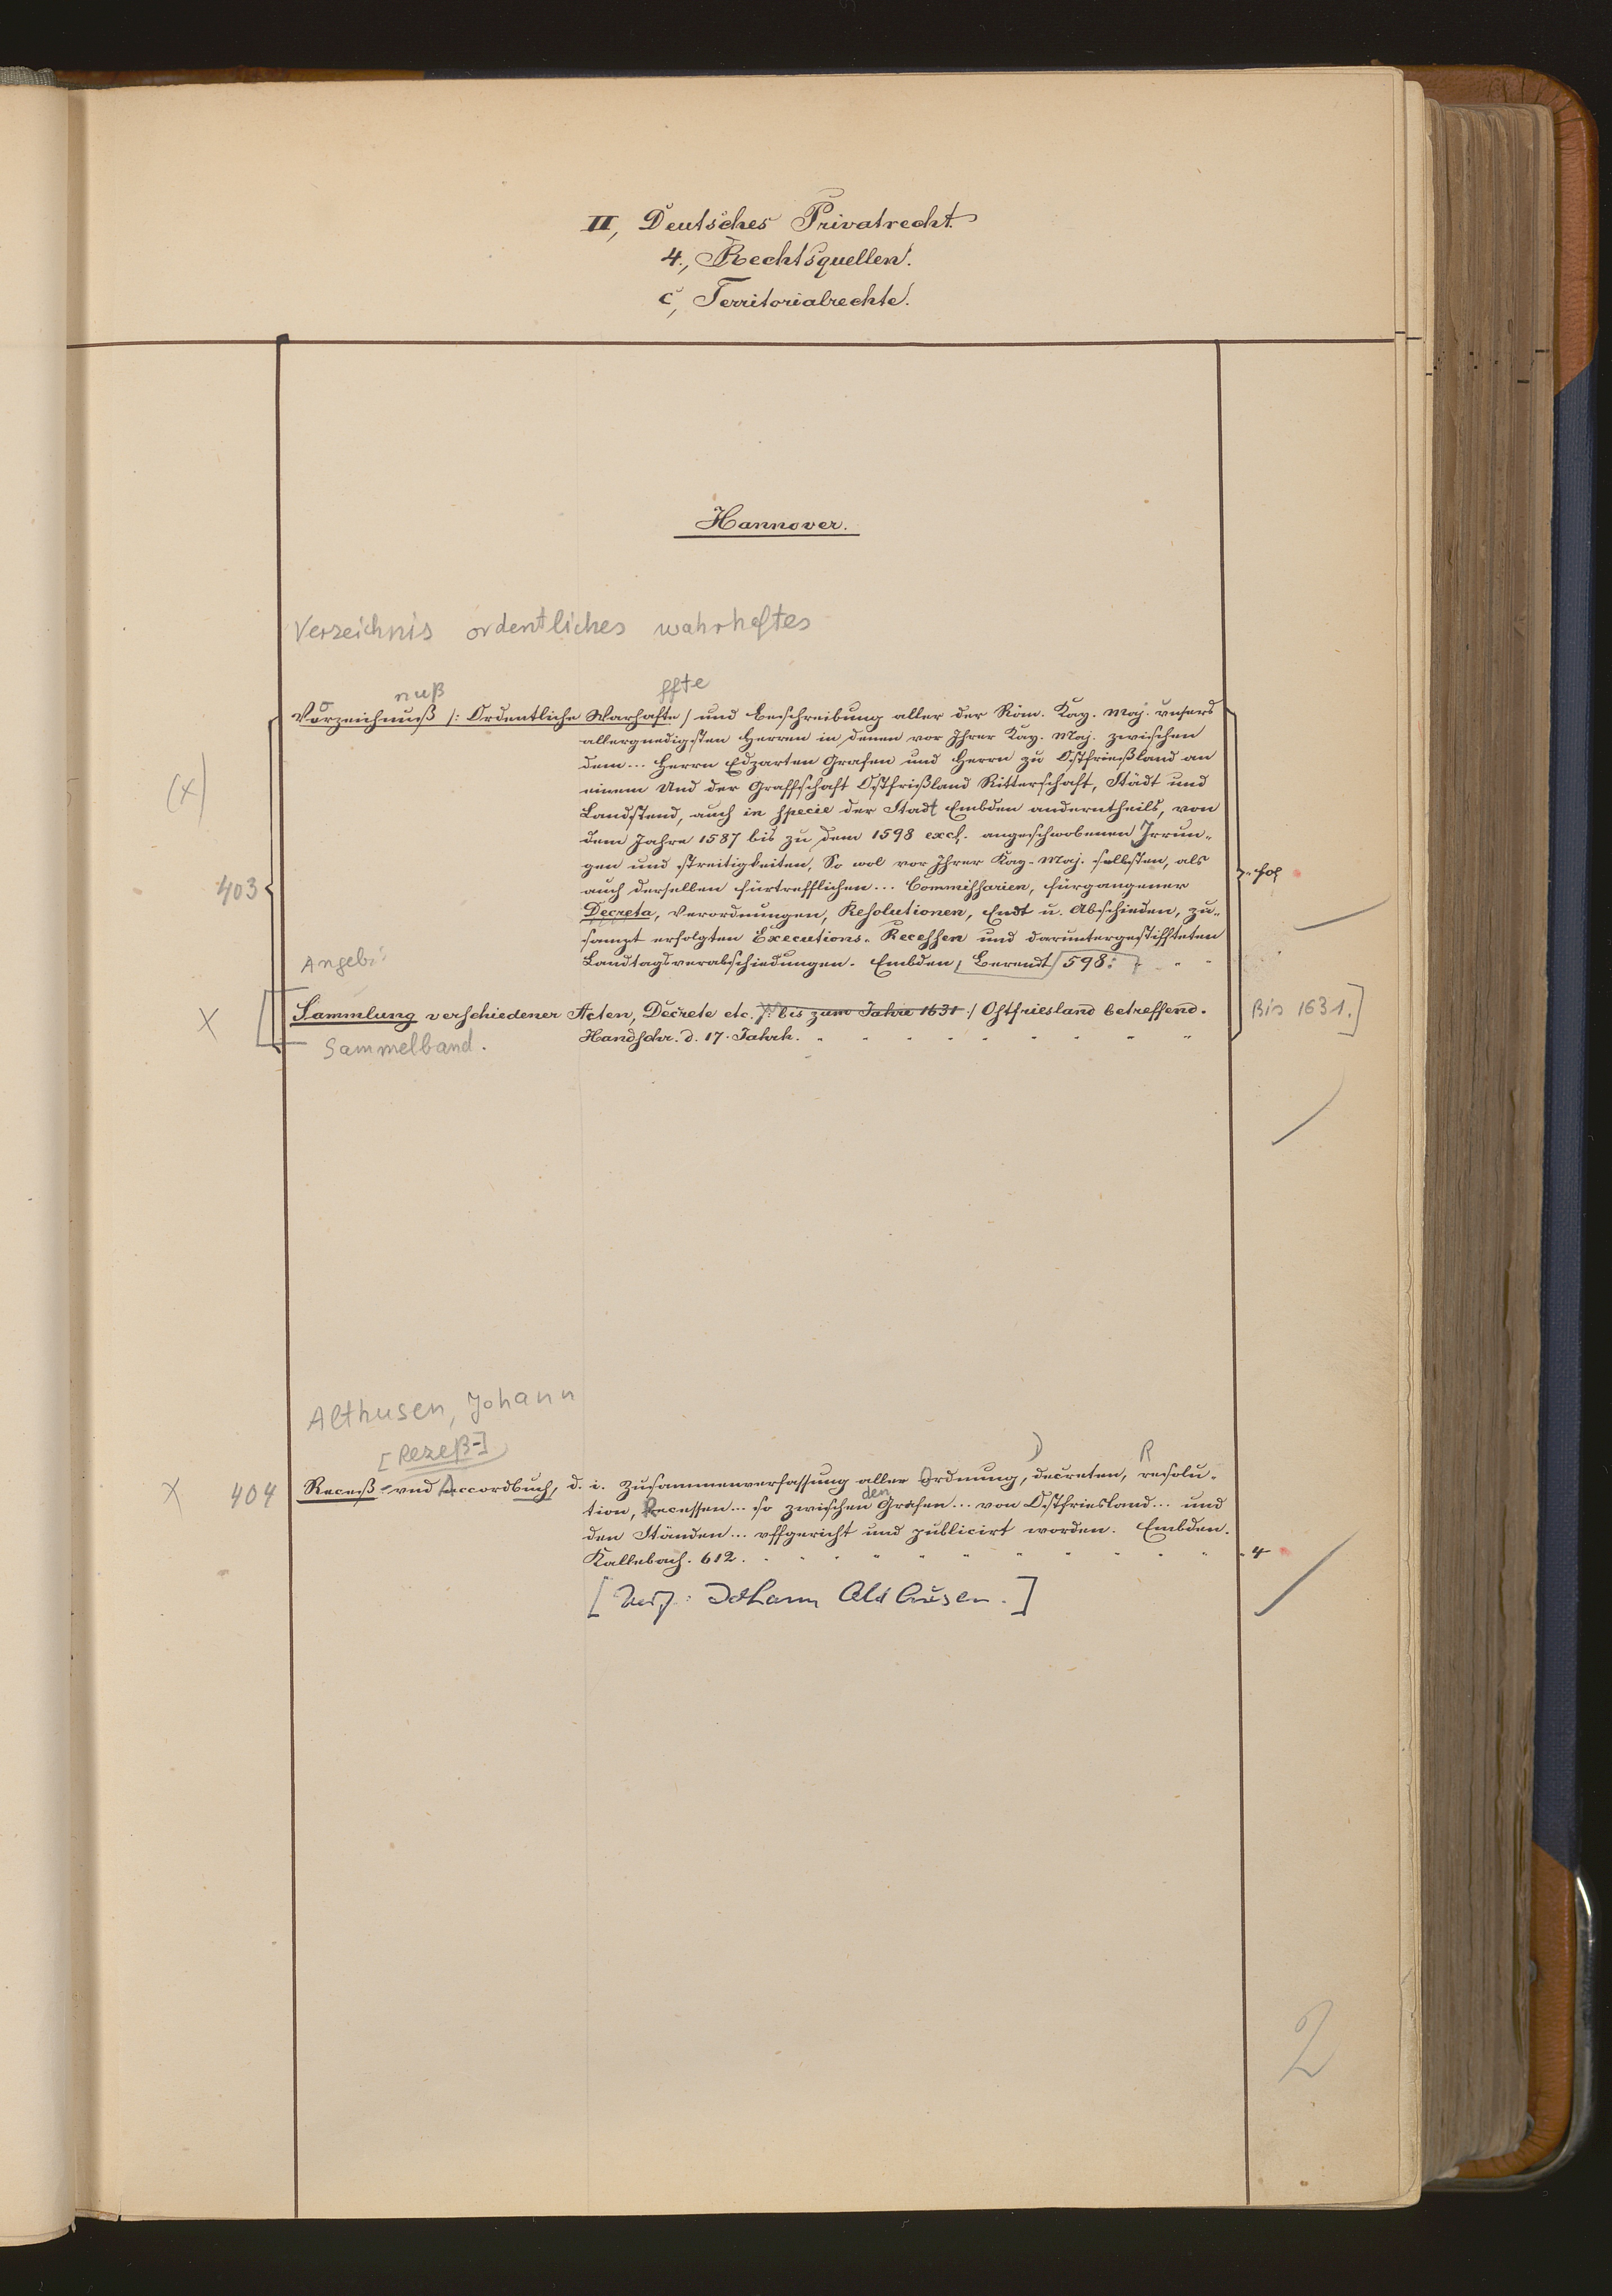 II, Deutsches Privatrecht.
4., Rechtsquellen.
c, Territorialrechte.
Hannover.
Verzeichnis ordentliches wahrheftes
nuß ffte
Vorzeichnuß /: Ordentliche Warhafte / und Beschreibung aller der Röm. Kay. Maj. unsers
allergnedigsten Herren in denen vor Ihrer Kay. Maj. zwischen
dem... Herrn Edzarten Grafen und Herrn zu Ostfrießland an
einem Und der Graffschaft Ostfrißland Ritterschaft, Städt und
(x)
Landstend, auch in specie der Stadt Embden anderntheils, von
dem Jahre 1587 bis zu dem 1598 excl. angeschwobenen Irrun-
gen und streitigkeiten, So wol vor Ihrer Kay. Maj. selbsten, als
403 auch derselben fürtrefflichen... Commissarien, fürgangener fol
Decreta, Verordnungen, Resolutionen, Endt u. Abschieden, zu-
sampt erfolgten Executions-Recessen und daruntergestiffteten
Angeb:
Landtagsverabschiedungen. Embden, Berendt 598:
X Sammlung verschiedener Acten, Decrete etc. /: bis zum Jahre 1631 :/ Ostfriesland betreffend. Bis 1631.]
Sammelband. Handschr. d. 17. Jahrh.
Althusen, Johann
[Rezeß-]
D R
X 404 Receß- vnd Accordbuch, d. i. Zusammenverfassung aller Ordnung, decreten, resolu-
den
tion, Recessen... so zwischen Grafen... von Ostfriesland... und
den Ständen... vffgericht und publicirt worden. Embden.
Kallnbach. 612. 4
[Verf: Johann Althusen.]
2